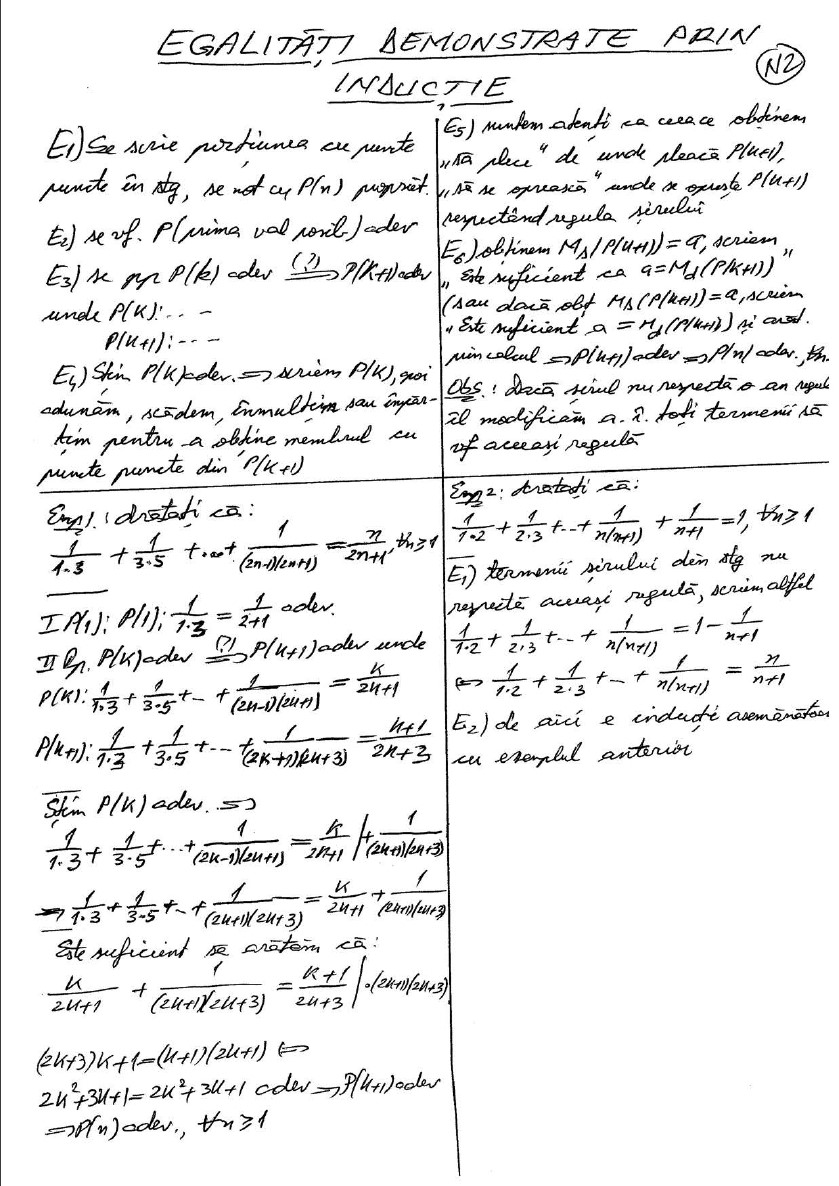 EGALITĂȚI DEMONSTRATE PRIN
INDUCȚIE
N2
E1) Se scrie porțiunea cu puncte
puncte în stg, se not cu P(n) propriet.
E2) se vf. P(prima val posib.) adev
E3) se pp P(k) adev (?)⟹ P(k+1) adev
unde P(k): ...
P(k+1): ...
E4) Știm P(k) adev. ⟹ scriem P(k), apoi
adunăm, scădem, înmulțim sau împăr-
țim pentru a obține membrul cu
puncte puncte din P(k+1)
E5) suntem atenți ca ceea ce obținem
„să plece" de unde pleacă P(k+1),
„să se oprească" unde se oprește P(k+1)
respectând regula șirului
E6) obținem Ms(P(k+1)) = a, scriem
„Este suficient ca a = Md(P(k+1))"
(sau dacă obț Ms(P(k+1)) = a, scriem
„Este suficient a = Md(P(k+1)) și arăt.
prin calcul ⟹ P(k+1) adev ⟹ P(n) adev., ∀n
Obs.: Dacă șirul nu respectă o an regulă
îl modificăm a. î. toți termenii să
vf aceeași regulă
Exp1.: Arătați că:
1/(1·3) + 1/(3·5) + ... + 1/((2n-1)(2n+1)) = n/(2n+1), ∀n≥1
I P(1): P(1): 1/(1·3) = 1/(2+1) adev.
II Pp. P(k) adev (?)⟹ P(k+1) adev unde
P(k): 1/(1·3) + 1/(3·5) + ... + 1/((2k-1)(2k+1)) = k/(2k+1)
P(k+1): 1/(1·3) + 1/(3·5) + ... + 1/((2k+1)(2k+3)) = (k+1)/(2k+3)
Știm P(k) adev. ⟹
1/(1·3) + 1/(3·5) + ... + 1/((2k-1)(2k+1)) = k/(2k+1) | + 1/((2k+1)(2k+3))
⟹ 1/(1·3) + 1/(3·5) + ... + 1/((2k+1)(2k+3)) = k/(2k+1) + 1/((2k+1)(2k+3))
Este suficient să arătăm că:
k/(2k+1) + 1/((2k+1)(2k+3)) = (k+1)/(2k+3) | ·(2k+1)(2k+3)
(2k+3)k+1=(k+1)(2k+1) ⟺
2k²+3k+1=2k²+3k+1 adev ⟹ P(k+1) adev
⟹ P(n) adev., ∀n≥1
Exp2: Arătați că:
1/(1·2) + 1/(2·3) + ... + 1/(n(n+1)) + 1/(n+1) = 1, ∀n≥1
E1) termenii șirului din stg nu
respectă aceeași regulă, scriem altfel
1/(1·2) + 1/(2·3) + ... + 1/(n(n+1)) = 1 - 1/(n+1)
⟺ 1/(1·2) + 1/(2·3) + ... + 1/(n(n+1)) = n/(n+1)
E2) de aici e inducție asemănătoare
cu exemplul anterior